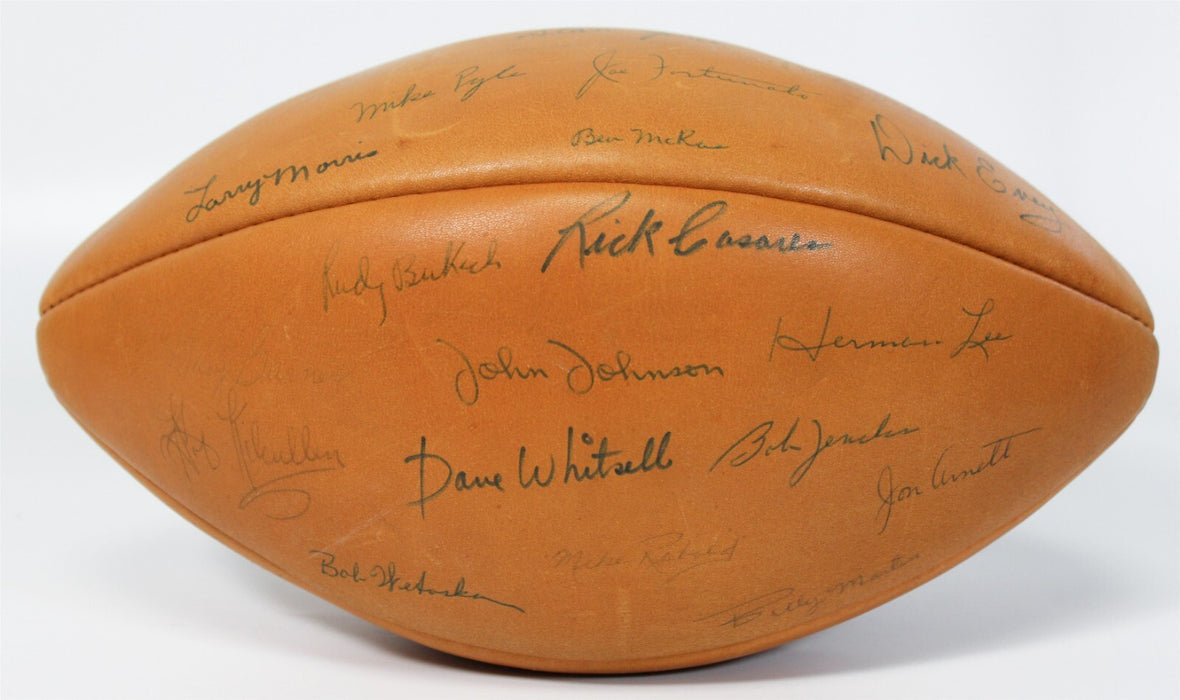 Mike Pyle
Joe Fortunato
Larry Morris
Ben McRae
Dick Evey
Rudy Bukich
Rick Casares
Herman Lee
John Johnson
Bob Kilcullen
Dave Whitsell
Bob Jencks
Jon Arnett
Bob Wetoska
Mike Rabold
Billy Martin